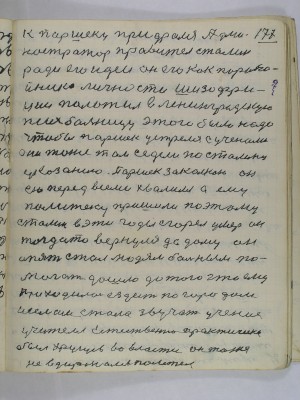 К паршеку придрался Адми- 177
нистратор правител сталин
ради его идеи он его как парано-
йника личности шизофре-
ции положил в ленинградскую
псих баяницу этого было надо
чтобы паршек устрелся с ученом
они тоже там седели по сталинс
указанию. Паршек закалкой он
сл перед всеми хвалилса ему
политику пришили поэтому
сталин в эти годы сгорел умер он
тогда то вернулся да дому он
опят стал людям болным по-
могат дошло до того что ему
приходилос ездеит по городам
и селам стала звучат учение
учителя Естественно практически
был Трудуть во власти он тоже
не вдержалса полител